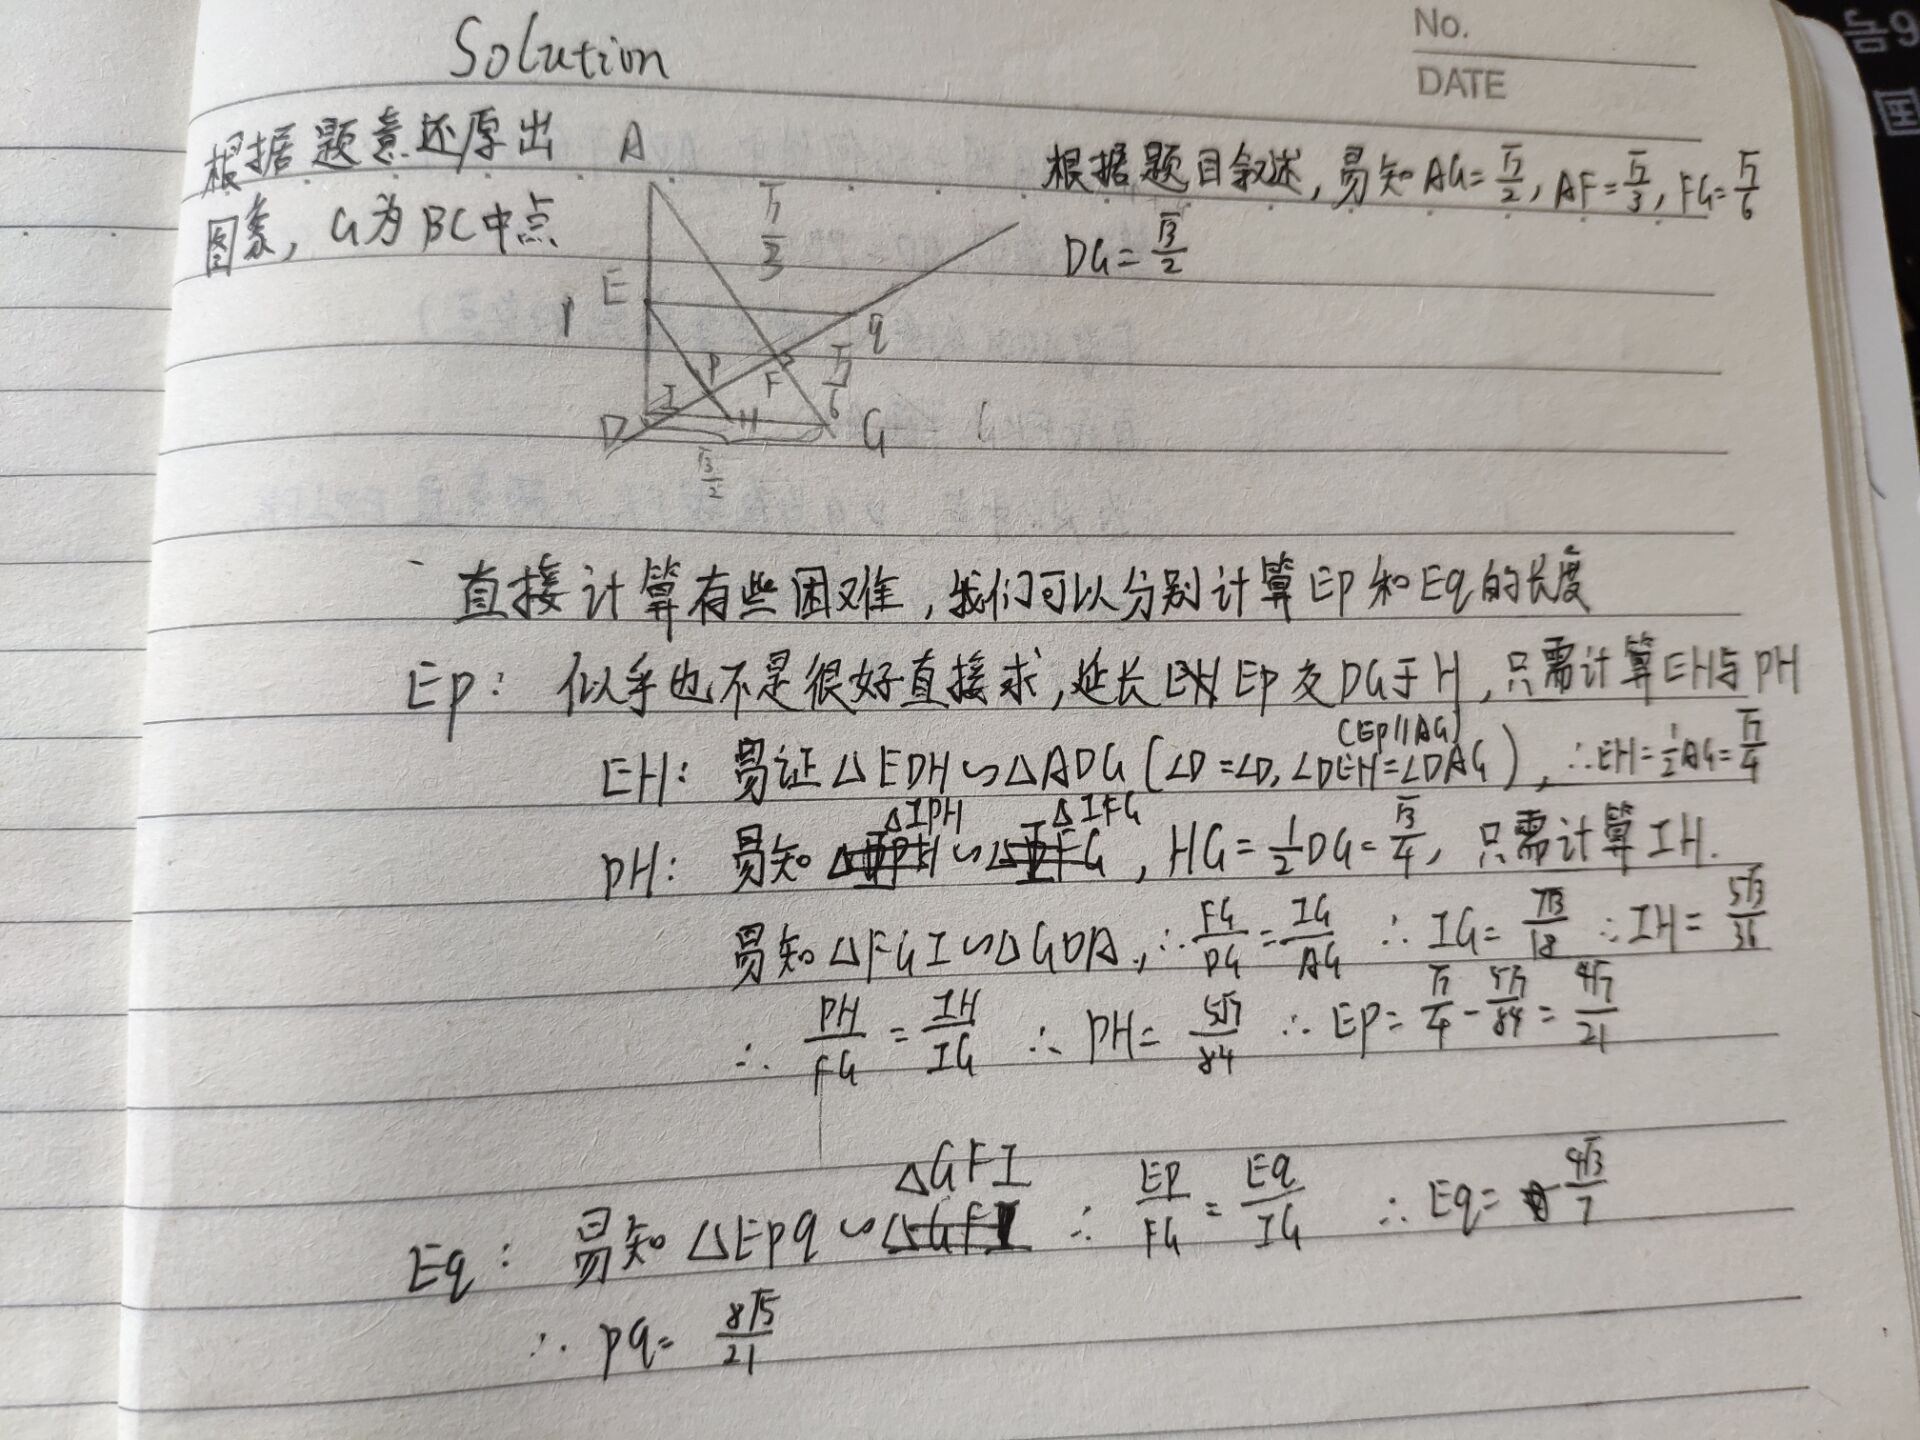 Solution
No.
DATE
根据题意还原出
图象, G为BC中点
A
√7/3
E
1
q
P
F
√7/6
I
D
H
G
√3/2
根据题目叙述, 易知AG=√7/2, AF=√7/3, FG=√7/6
DG=√3/2
直接计算有些困难, 我们可以分别计算EP和Eq的长度
EP: 似乎也不是很好直接求, 延长EP交DG于H, 只需计算EH与PH
(EP∥AG)
EH: 易证△EDH∽△ADG(∠D=∠D, ∠DEH=∠DAG), ∴EH=1/2AG=√7/4
PH: 易知△IPH∽△IFG, HG=1/2DG=√3/4, 只需计算IH.
易知△FGI∽△GDA, ∴FG/DG=IG/AG ∴IG=7√3/18 ∴IH=5√3/36
∴ PH/FG=IH/IG ∴ PH=5√7/84 ∴ EP=√7/4-5√7/84=4√7/21
Eq: 易知△EPq∽△GFI ∴ EP/FG=Eq/IG ∴ Eq=4√3/7
∴ Pq=8√5/21
国